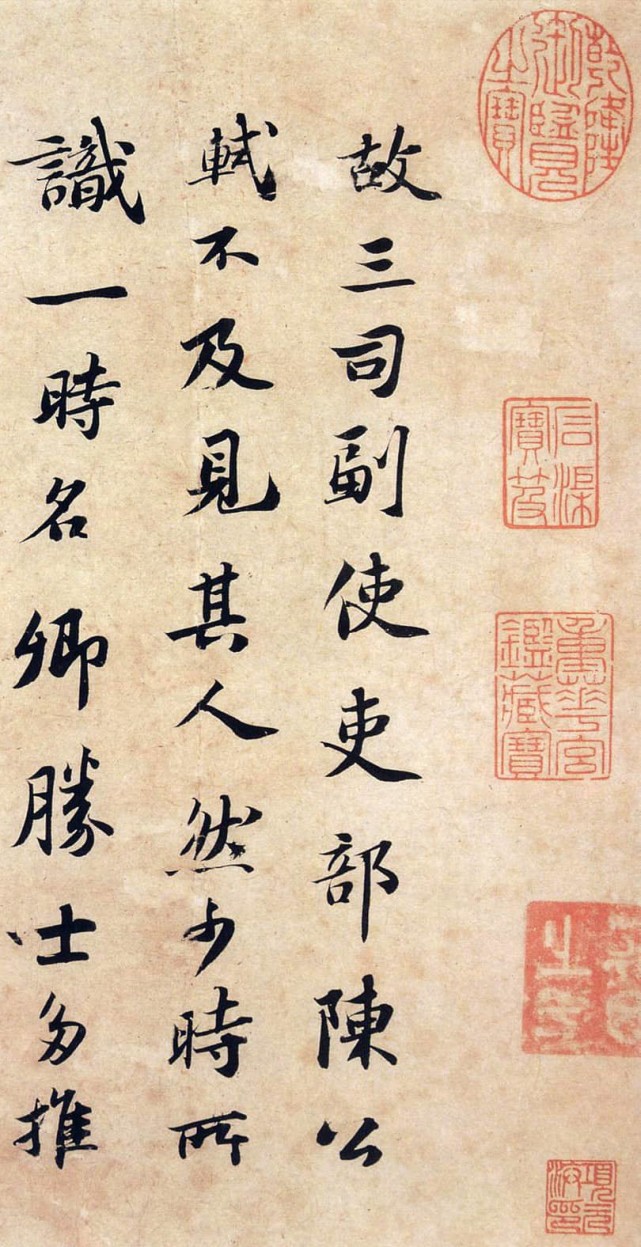 乾隆御覽之寶
石渠寶笈
重華宮鑑藏寶
項元汴印
故三司副使吏部陳公
軾不及見其人然少時所
識一時名卿勝士多推